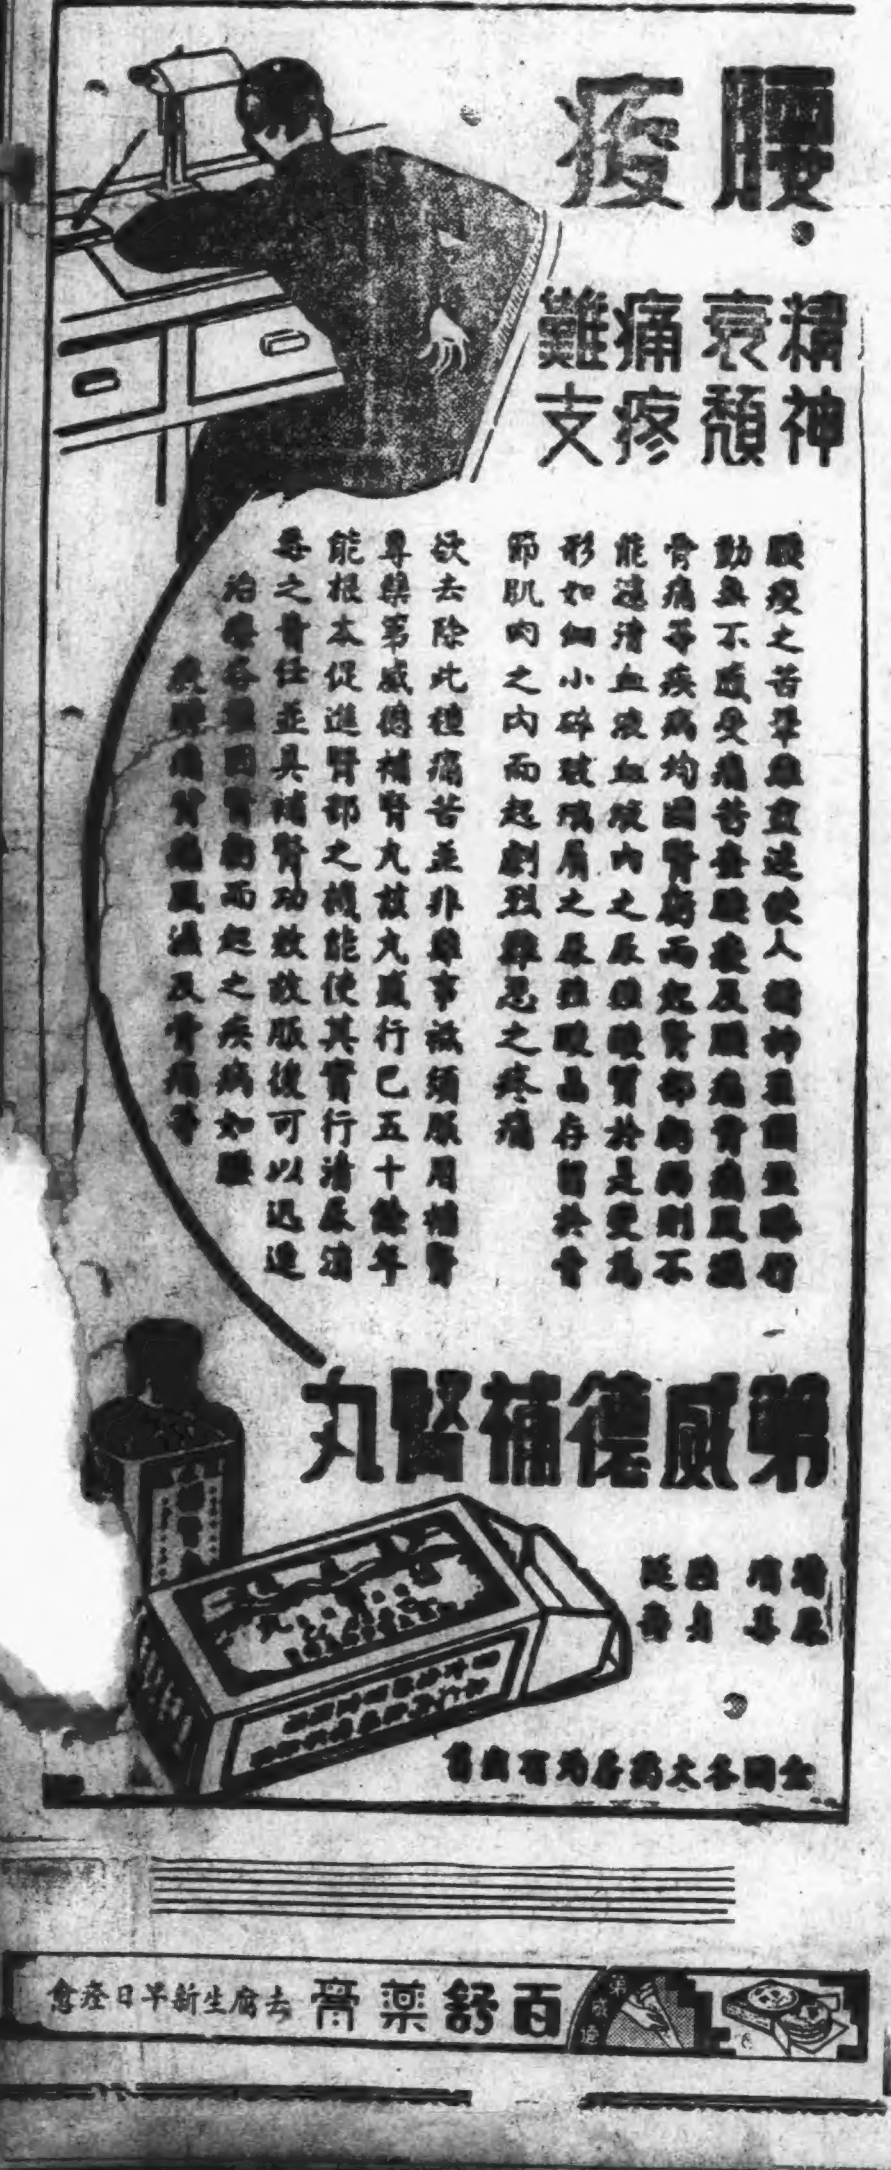 腰痠
精神
衰頹
痛疼
難支
腰痠之苦使人精神行
動無不受痛苦查腰痠及腰痛背痛風濕
骨痛等疾病均因腎弱而起腎部則不
能濾清血液血液內之尿酸質於是變為
形如細小碎玻璃屑之尿酸晶存留於骨
節肌肉之內而起劇烈難忍之疼痛
欲去除此種痛苦並非難事祗須服用補腎
專藥第威德補腎丸該丸風行已五十餘年
能根本促進腎部之機能使其實行清尿消
毒之責任並具補腎功效故服後可以迅速
治療各種因腎弱而起之疾病如腰
痠腰痛背痛風濕及骨痛等
第威德補腎丸
清尿
消毒
強身
延壽
全國各大藥房均有出售
第威德
百舒藥膏
去腐生新早日痊愈